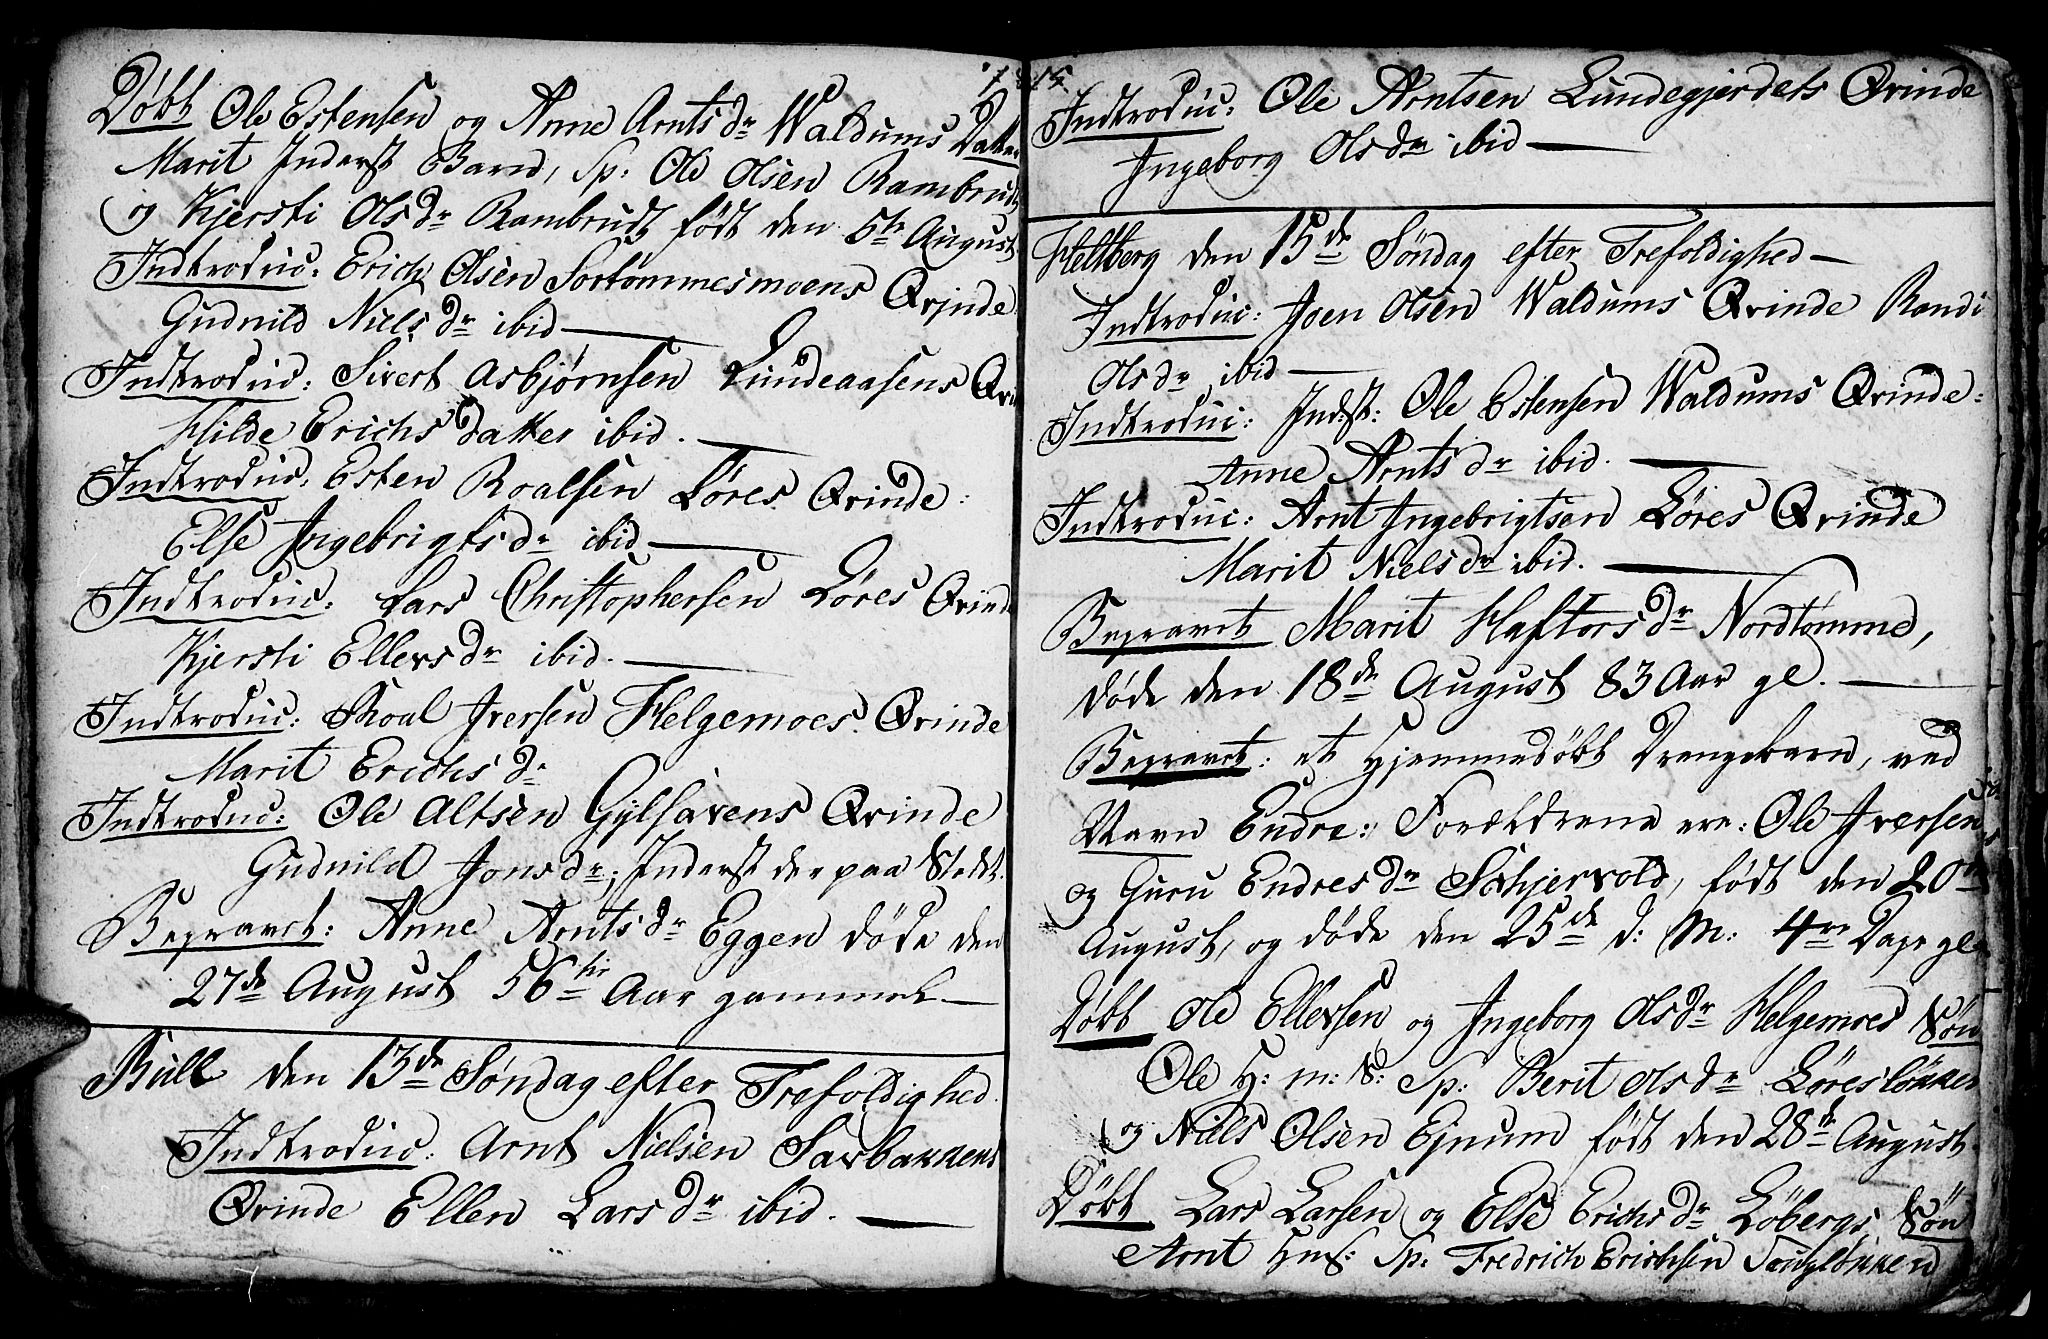 Døbt Ole Estensen og Anne Arntsdr Waldums Datter
Marit Inderst Barn, Sp: Ole Olsen Rambrudt
og Kjersti Olsdr Rambrudt født den 5te August
Indtroduc: Erich Olsen Sortømmesmoens Qvinde
Gudnild Nielsdr ibid —
Indtroduc: Sivert Asbjørnsen Lundeaasens Qvin
Hilde Erichsdatter ibid. —
Indtroduc: Esten Roalsen Løres Qvinde:
Else Ingebrigtsdr ibid —
Indtroduc: Lars Christophersen Løres Qvind
Kjersti Ellevsdr ibid. —
Indtroduc: Roal Iversen Helgemoes Qvinde
Marit Erichsdr
Indtroduc: Ole Altsen Gylhavens Qvinde
Gudnild Jonsdr; Inderst der paa Stedet.
Begravet: Anne Arntsdr Eggen døde den
27de August 56tiv Aar gammel —
Bull den 13de Søndag efter Trefoldighed.
Indtroduc: Arnt Nielsen Sarbakkens
Qvinde Ellen Larsdr ibid. —
1815.
Indtroduc: Ole Arntsen Lundegjerdets Qvinde
Ingeborg Olsdr ibid —
Heltberg den 15de Søndag efter Trefoldighed —
Indtroduc: Joen Olsen Waldums Qvinde Randi
Olsdr ibid —
Indtroduc: Indst: Ole Estensen Waldums Qvinde:
Anne Arntsdr ibid. —
Indtroduc: Arnt Ingebrigtsen Løres Qvinde
Marit Nielsdr ibid. —
Begravet Marit Haftorsdr Nordtømme,
døde den 18de August 83 Aar gl. —
Begravet: et Hjemmedøbt Drengebarn, ved
Navn Endre: Forældrene ere: Ole Iversen
og Guru Endresdr Schjervold, født den 20de
August, og døde den 25de d: M: 4re Dage gl.
Døbt Ole Ellevsen og Ingeborg Olsdr Helgemoes Søn
Ole H: m: S: Sp: Berit Olsdr Løresløkken
og Niels Olsen Ejnum født den 28de August.
Døbt Lars Larsen og Else Erichsdr Løbergs Søn
Arnt Hms: Sp: Fredrich Erichsen